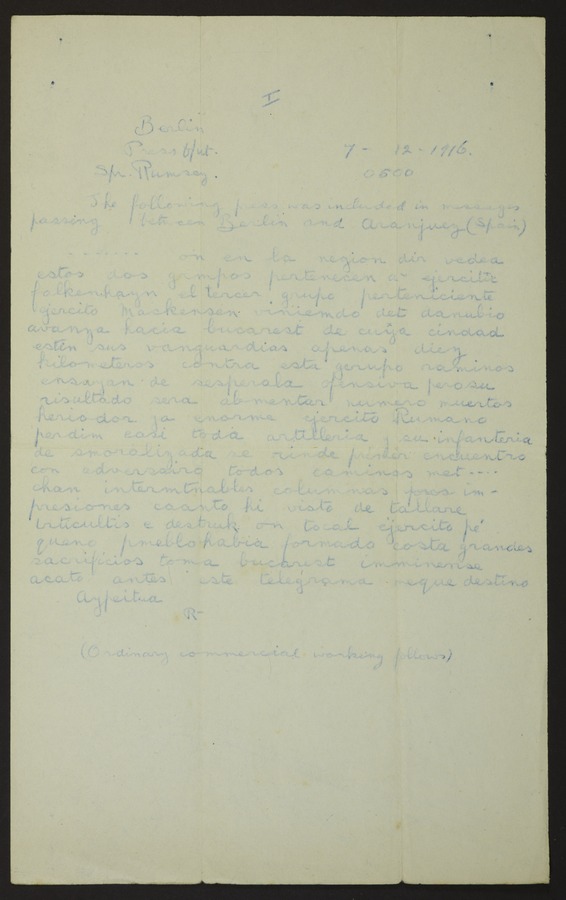 I
Berlin
Press 6/ut.
7 - 12 - 1916.
Spr. Rumsey.
0500
The following press was included in messages
passing between Berlin and Aranjuez (Spain)
....... on en la region dir vedea
estos dos grmpos pertenecen a ejercitiz
falkenhayn el tercer grupo perteniciente
ejercito Mackensen viniemdo det danubio
avanya hacia bucarest de cuija cindad
esten sus vanguardias apenas diez
kilometeros contra esta gerupo raminos
ensayan de sesperala ofensiva perosu
risultado sera abmentar numero muertos
heriodor ja enorme ejercito Rumano
perdim casi toda artilleria y su infanteria
de smoralizada se rinde primer encuentro
con adversairo todos caminos met ....
chan intermtnables columnas pros im-
presiones caanto hi visto de tallare
on tocal ejercito pe
queno pmeblo habia formado costa grandes
sacrificios toma bucarest imminense
acato antes iste telegrama neque destino
Aypeitua
R-
(Ordinary commercial working follows)